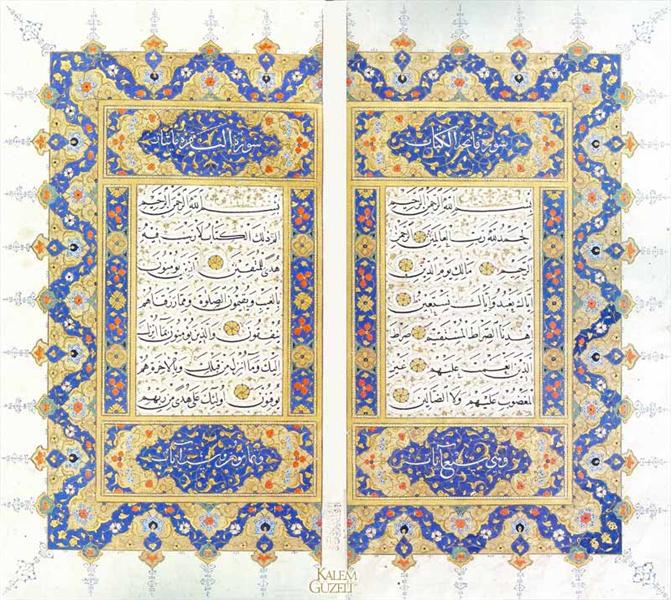 سورة فاتحة الكتاب
بسم الله الرحمن الرحيم
الحمد لله رب العالمين الرحمن
الرحيم مالك يوم الدين
اياك نعبد واياك نستعين
اهدنا الصراط المستقيم صراط
الذين انعمت عليهم غير
المغضوب عليهم ولا الضالين
وهي سبع آيات
سورة البقرة مائتان
بسم الله الرحمن الرحيم
الم ذلك الكتاب لا ريب فيه
هدى للمتقين الذين يؤمنون
بالغيب ويقيمون الصلوة ومما رزقناهم
ينفقون والذين يؤمنون بما انزل
اليك وما انزل من قبلك وبالآخرة هم
يوقنون اولئك على هدى من ربهم
وثمانون وست آيات
KALEM
GUZELI